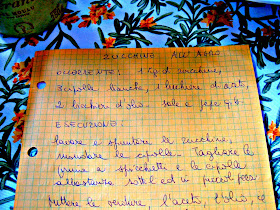 ZUCCHINE ALL'AGRO
OCCORRENTE: 1 Kg di zucchine,
3 cipolle bianche, 1 bicchiere d'aceto,
2 bicchieri d'olio sale e pepe q.b.
ESECUZIONE:
lavare e spuntare le zucchine,
mondare le cipolle. Tagliare le
prime a spicchietti e le cipolle
abbastanza sottili ed in piccoli pezzi
mettere le verdure, l'aceto, l'olio, il